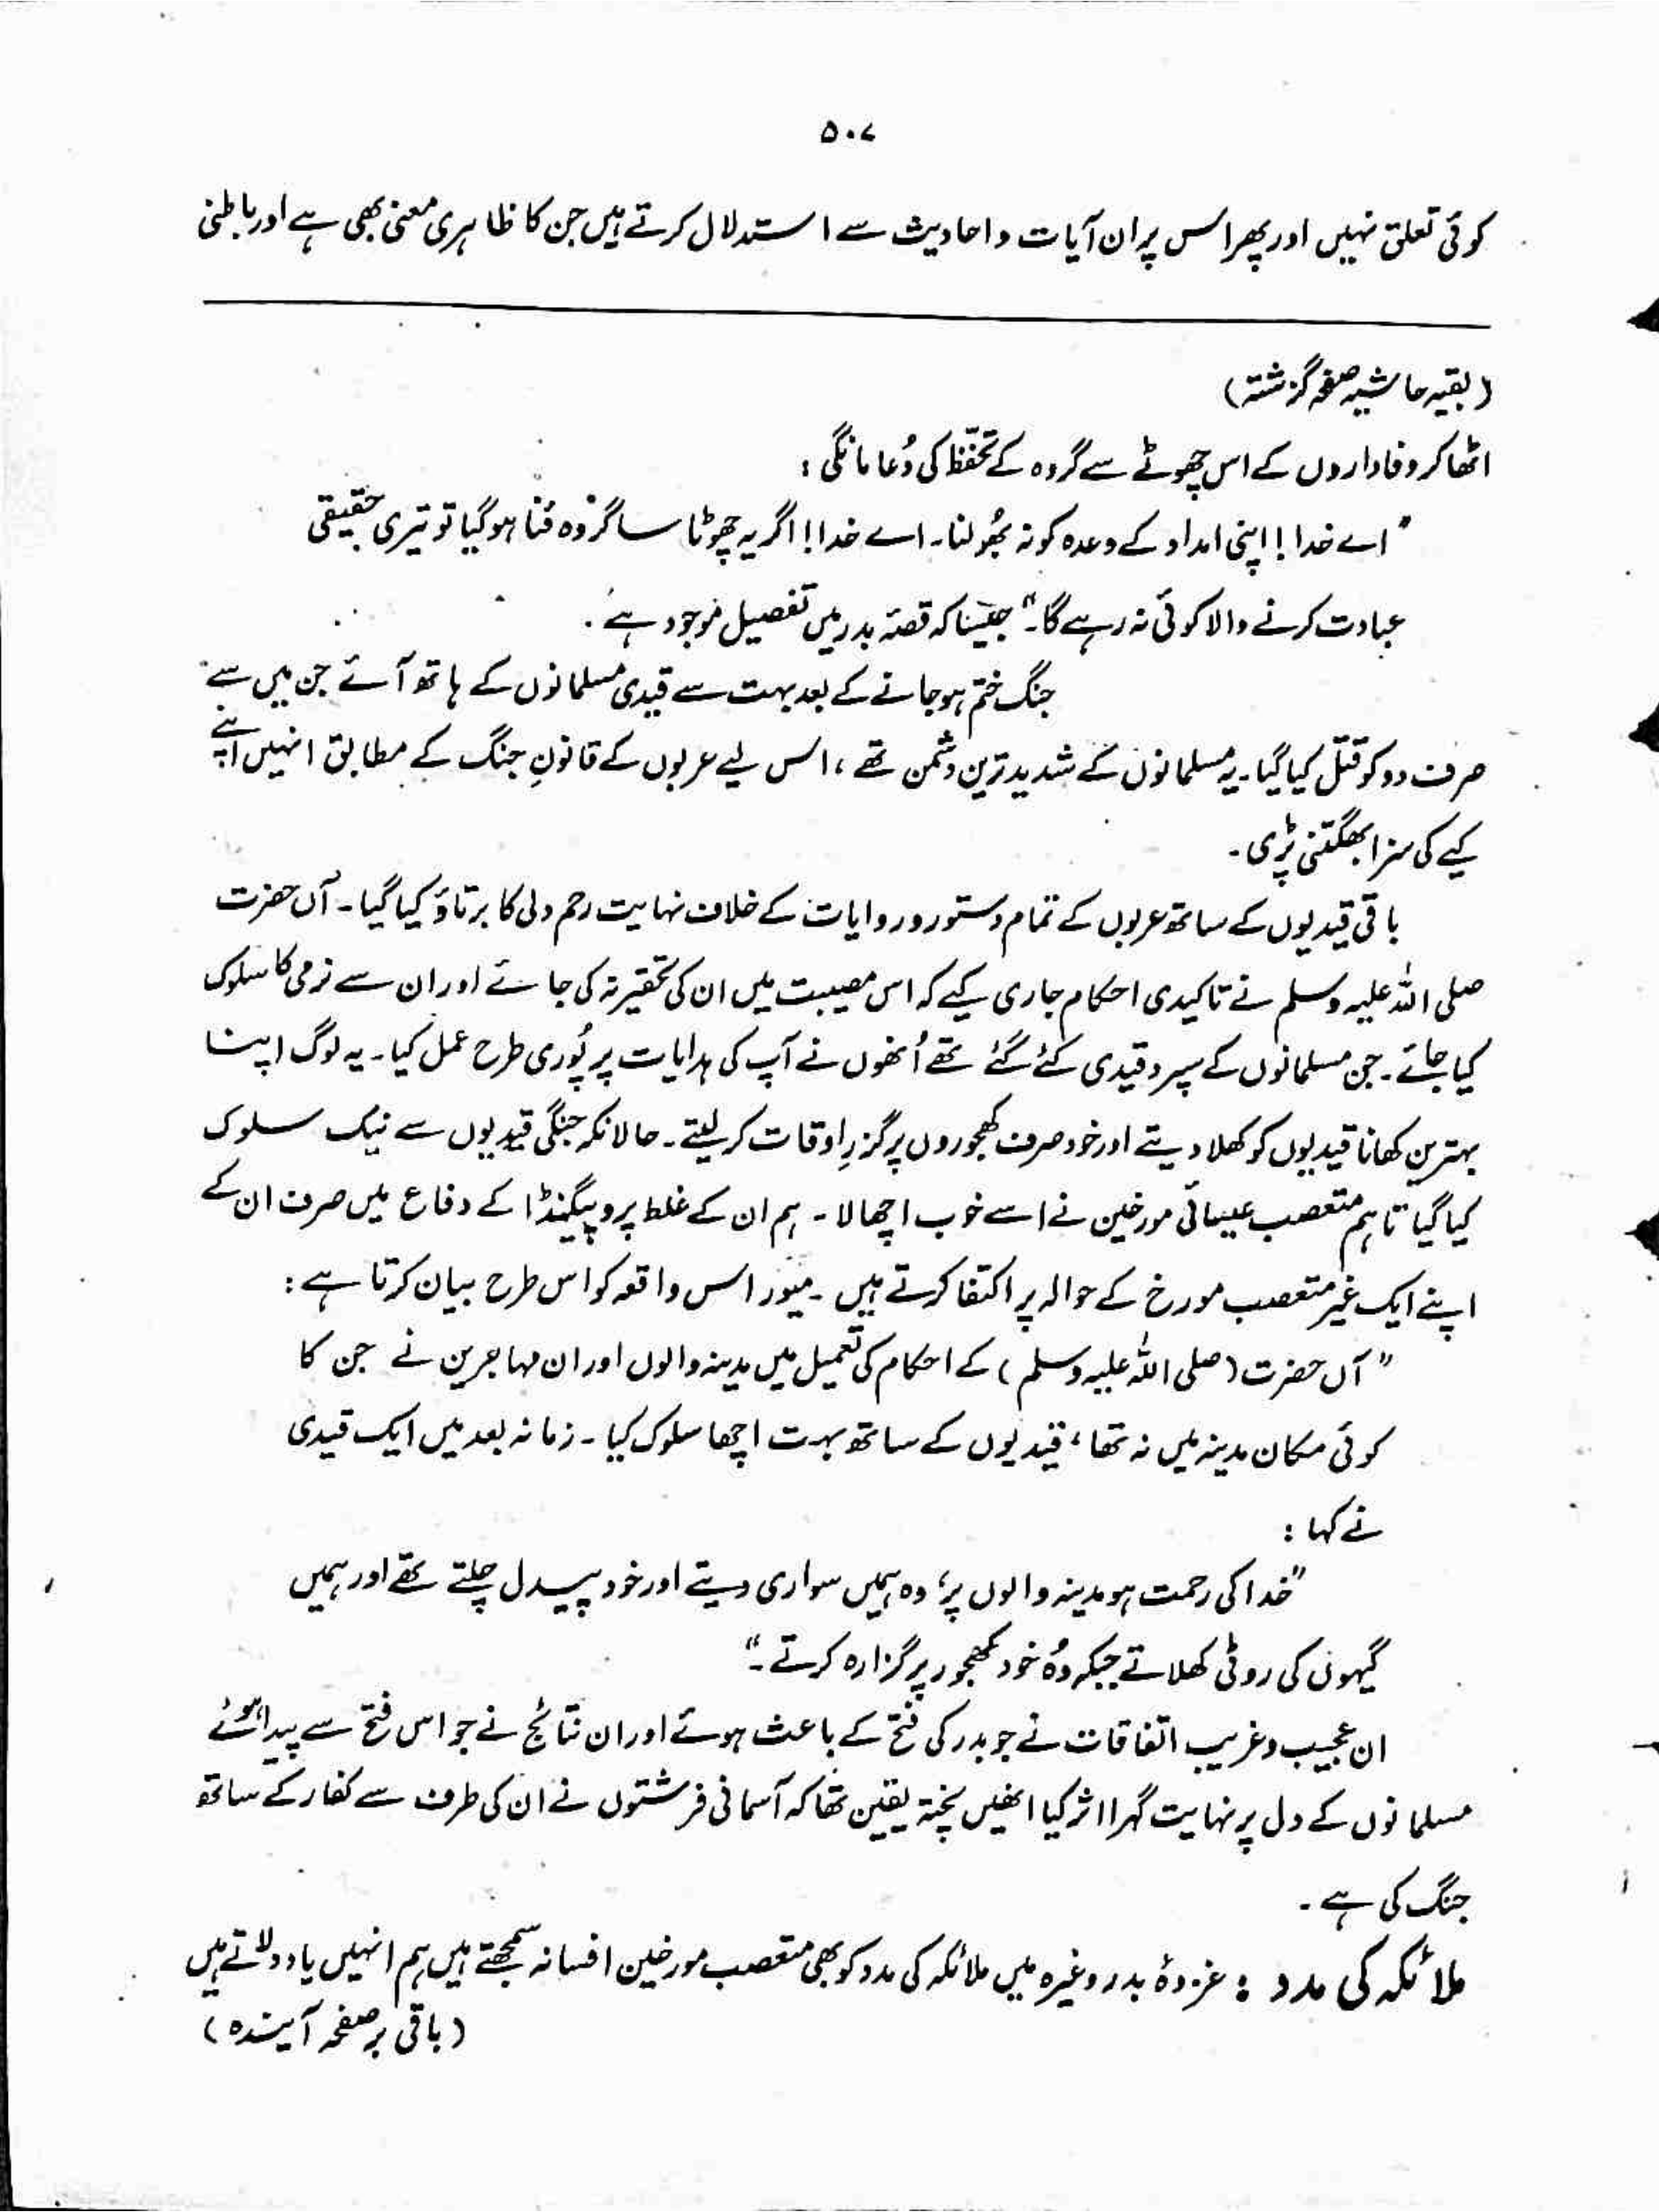 ۵۰۷
کوئی تعلق نہیں اور پھر اس پر ان آیات و احادیث سے استدلال کرتے ہیں جن کا ظاہری معنی بھی ہے اور باطنی
(بقیہ حاشیہ صفحہ گزشتہ)
اٹھا کر وفاداروں کے اس چھوٹے سے گروہ کے تحفّظ کی دُعا مانگی :
" اے خدا ! اپنی امداد کے وعدہ کو نہ بھُولنا۔ اے خدا! اگر یہ چھوٹا سا گروہ فنا ہو گیا تو تیری حقیقی
عبادت کرنے والا کوئی نہ رہے گا۔" جیسا کہ قصّہ بدر میں تفصیل موجود ہے ۔
جنگ ختم ہو جانے کے بعد بہت سے قیدی مسلمانوں کے ہاتھ آئے جن میں سے
صرف دو کو قتل کیا گیا۔ یہ مسلمانوں کے شدید ترین دشمن تھے ، اس لیے عربوں کے قانونِ جنگ کے مطابق انہیں اپنے
کیے کی سزا بھگتنی پڑی ۔
باقی قیدیوں کے ساتھ عربوں کے تمام دستور و روایات کے خلاف نہایت رحم دلی کا برتاؤ کیا گیا ۔ آں حضرت
صلی اللہ علیہ وسلم نے تاکیدی احکام جاری کیے کہ اس مصیبت میں ان کی تحقیر نہ کی جائے اور ان سے نرمی کا سلوک
کیا جائے ۔ جن مسلمانوں کے سپرد قیدی کئے گئے تھے اُنھوں نے آپ کی ہدایات پر پُوری طرح عمل کیا ۔ یہ لوگ اپنا
بہترین کھانا قیدیوں کو کھلا دیتے اور خود صرف کھجوروں پر گزرِ اوقات کر لیتے ۔ حالانکہ جنگی قیدیوں سے نیک سلوک
کیا گیا تاہم متعصب عیسائی مورخین نے اسے خوب اچھالا ۔ ہم ان کے غلط پروپیگنڈا کے دفاع میں صرف ان کے
اپنے ایک غیر متعصب مورخ کے حوالہ پر اکتفا کرتے ہیں ۔ میور اس واقعہ کو اس طرح بیان کرتا ہے :
" آں حضرت (صلی اللہ علیہ وسلم ) کے احکام کی تعمیل میں مدینہ والوں اور ان مہاجرین نے جن کا
کوئی مکان مدینہ میں نہ تھا ، قیدیوں کے ساتھ بہت اچھا سلوک کیا ۔ زمانہ بعد میں ایک قیدی
نے کہا :
"خدا کی رحمت ہو مدینہ والوں پر، وہ ہمیں سواری دیتے اور خود پیدل چلتے تھے اور ہمیں
گیہوں کی روٹی کھلاتے جبکہ وُہ خود کھجور پر گزارہ کرتے ۔"
ان عجیب و غریب اتفاقات نے جو بدر کی فتح کے باعث ہوئے اور ان نتائج نے جو اس فتح سے پیدا ہوئے
مسلمانوں کے دل پر نہایت گہرا اثر کیا انھیں پختہ یقین تھا کہ آسمانی فرشتوں نے ان کی طرف سے کفار کے ساتھ
جنگ کی ہے ۔
ملائکہ کی مدد : غزوۂ بدر وغیرہ میں ملائکہ کی مدد کو بھی متعصب مورخین افسانہ سمجھتے ہیں ہم انہیں یاد دلاتے ہیں
(باقی بر صفحہ آیندہ )